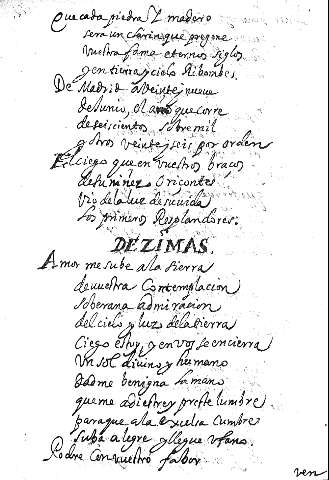 que cada piedra Z madero
sera un clarin que pregone
vuestra fama eternos siglos
y en tierra y cielo Ribombe.
De Madrid a Veinte y nueve
de Junio, el año que corre
de seiscientos sobre mil
y otros veinte y seis por orden
El ciego que en vuestros braços
de su niñez Oricontes
Vio de la luz de su vida
los primeros Resplandores.
DEZIMAS.
Amor me sube a la sierra
de vuestra Contemplacion
soberana admiracion
del cielo y luz de la tierra
Ciego estoy, y en vos se encierra
Un sol divino y humano
dadme benigna la mano
que me adiestre y preste lumbre
para que a la excelsa Cumbre
suba alegre y llegue Vfano.
Podre Con vuestro fabor
ven